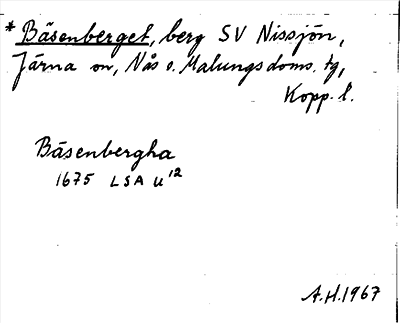 * Bäsenberget, berg SV Nissjön,
Järna sn, Nås o. Malungs doms. tg,
Kopp. l.
Bäsenbergha
1675 LSA U 12
A.H. 1967